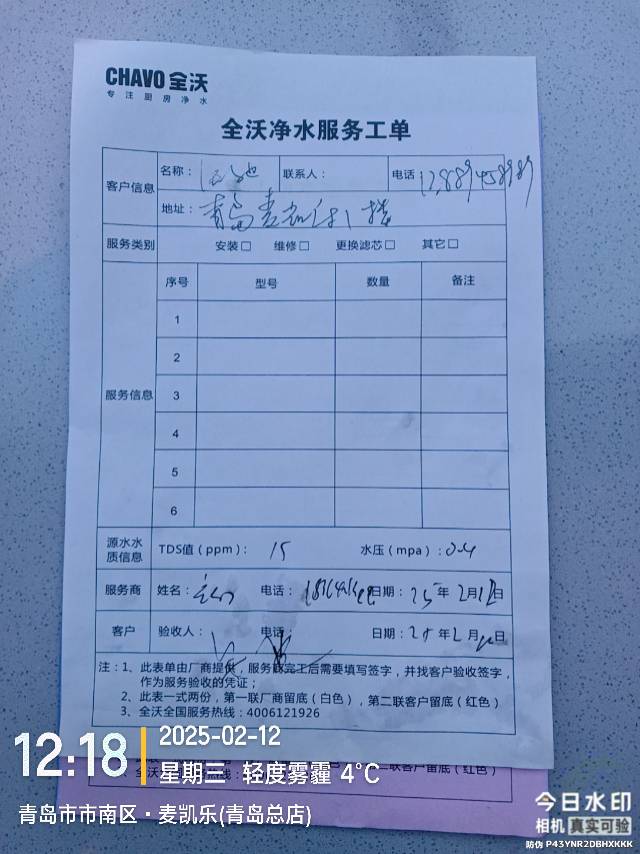 CHAVO 全沃
专注厨房净水
全沃净水服务工单
客户信息 名称： 联系人： 电话
地址：青岛麦凯乐1楼
服务类别 安装□ 维修□ 更换滤芯□ 其它□
服务信息 序号 型号 数量 备注
1
2
3
4
5
6
源水水质信息 TDS值（ppm）： 15 水压（mpa）：0.4
服务商 姓名： 电话： 日期：25年2月12日
客户 验收人： 电话 日期：25年2月12日
注：1、此表单由厂商提供，服务商完工后需要填写签字，并找客户验收签字，
作为服务验收的凭证；
2、此表一式两份，第一联厂商留底（白色），第二联客户留底（红色）
3、全沃全国服务热线：4006121926
12:18
2025-02-12
星期三 轻度雾霾 4°C
青岛市市南区·麦凯乐(青岛总店)
今日水印
相机 真实可验
防伪 P43YNR2DBHXKKK